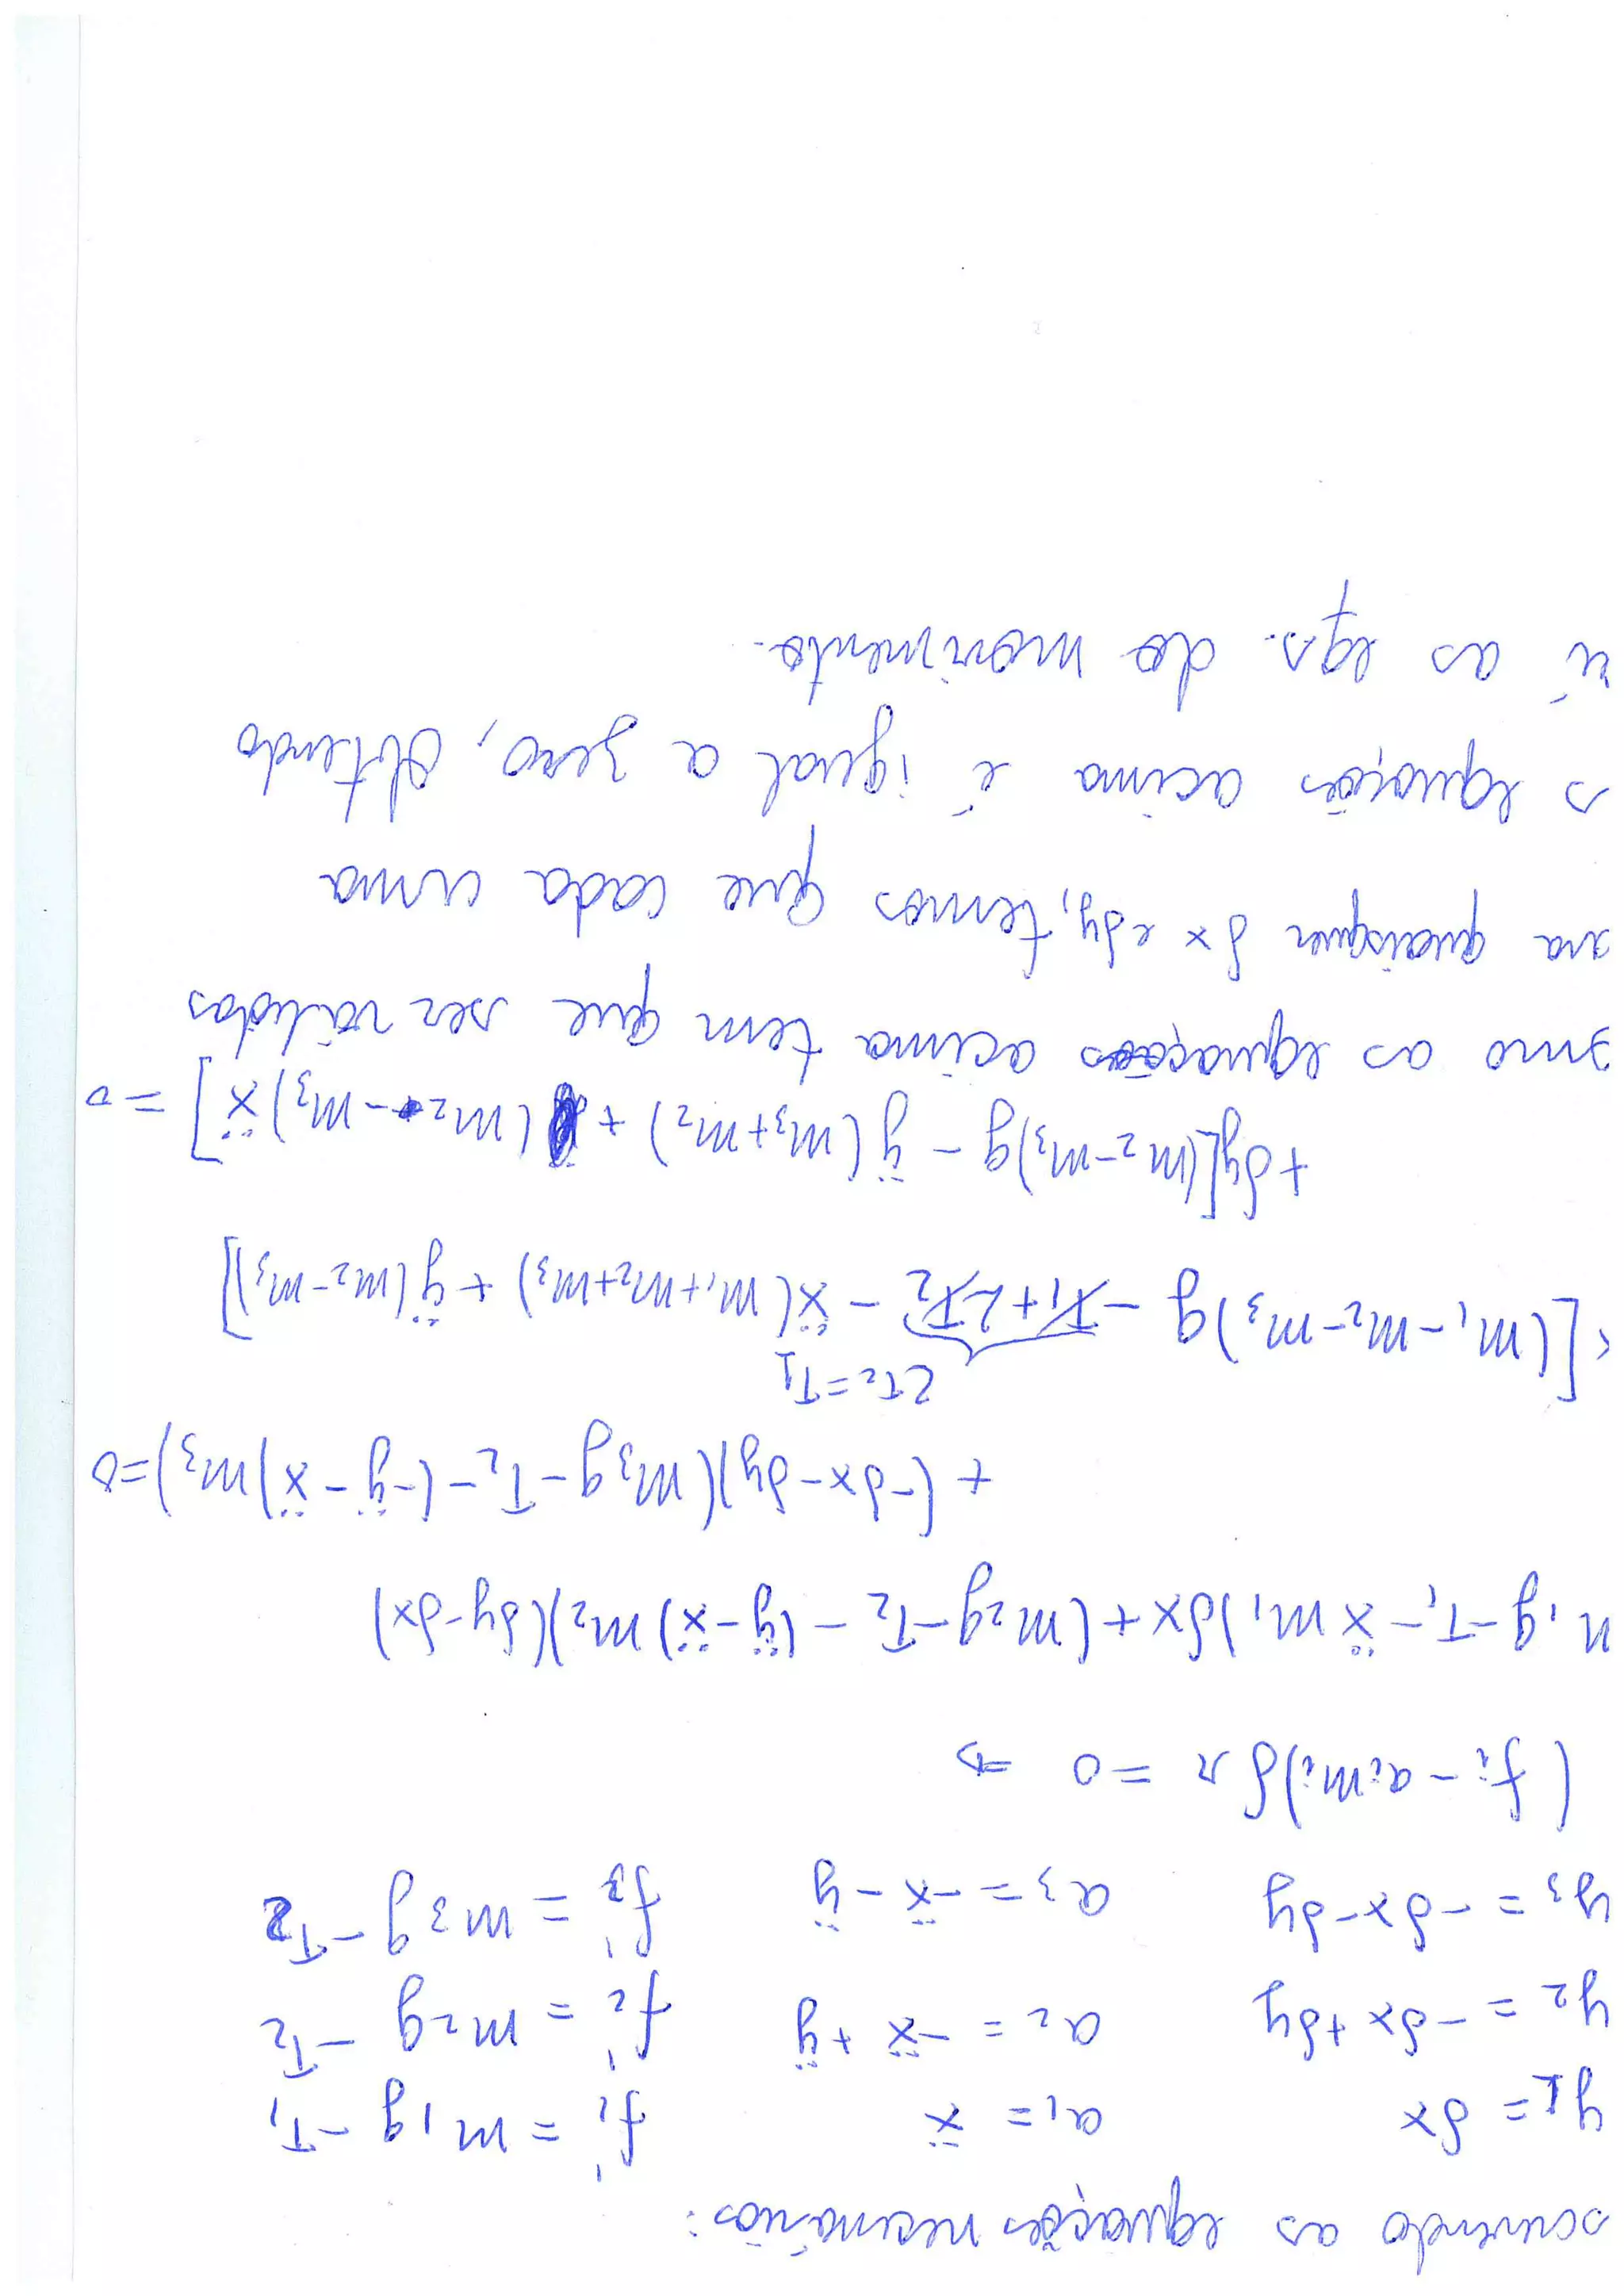 screvendo as equações necessárias:
y1 = δx a1 = ẍ f1 = m1g - T1
y2 = -δx + δy a2 = -ẍ + ÿ f2 = m2g - T2
y3 = -δx - δy a3 = -ẍ - ÿ f3 = m3g - T2
(fi - aimi)δr = 0 ⇒
m1g - T1 - ẍm1)δx + (m2g - T2 - (ÿ - ẍ)m2)(δy - δx)
+ (-δx - δy)(m3g - T2 - (-ÿ - ẍ)m3) = 0
2T2 = T1
[(m1 - m2 - m3)g - T1 + 2T2 - ẍ(m1 + m2 + m3) + ÿ(m2 - m3)]
+ δy[(m2 - m3)g - ÿ(m3 + m2) + (m2 - m3)ẍ] = 0
omo as equações acima tem que ser válidas
ara quaisquer δx e δy, temos que cada uma
s equações acima é igual a zero, obtendo
as eqs. do movimento.